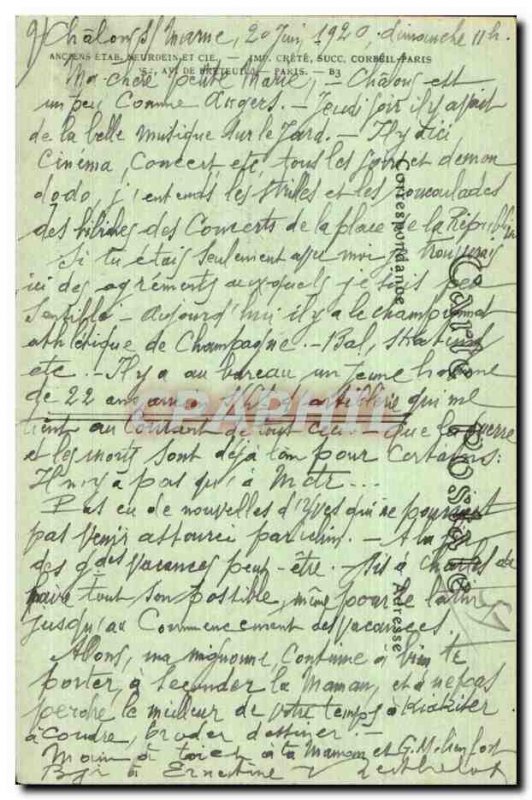 Châlons s/ Marne, 20 Juin 1920, dimanche 11h.
ANCIENS ETAB. NEURDEIN ET CIE. — IMP. CRÉTÉ, SUCC. CORBEIL-PARIS
52, AV. DE BRETEUIL, PARIS. — B3
Ma chère petite Marie, — Châlons est
un peu comme Angers. — Jeudi soir il y avait
de la belle musique sur le Jard. — Il y a ici
Cinéma, Concert etc, tous les soirs et de mon
dodo, j'entends les trilles et les roucoulades
des des Concerts de la place de la République
Si tu étais seulement avec moi je trouverais
ici des agréments auxquels je suis peu
sensible — Aujourd'hui il y a le championnat
athlétique de Champagne. — Bal, skating
etc. — Il y a au bureau un jeune homme
de 22 ans, artillerie qui me
tient au courant de tout ceci. — que la guerre
et les morts sont déjà loin pour certains :
Il n'y a pas qu'à Metz ...
Pas eu de nouvelles d'Yves qui ne pourront
pas venir — A la fin
des gdes vacances peut-être. — Dis à Charles de
faire tout son possible, même pour le latin
jusqu'au commencement des vacances.
Allons, ma mignonne, continue à bien te
porter, à seconder la Maman, et à ne pas
perdre le meilleur de votre temps à
à coudre, broder, dessiner. —
à toi et à ta Maman et G. M. bien fort
Bjr à Ernestine
Carte Postale
Correspondance
Adresse
CPAPHIL